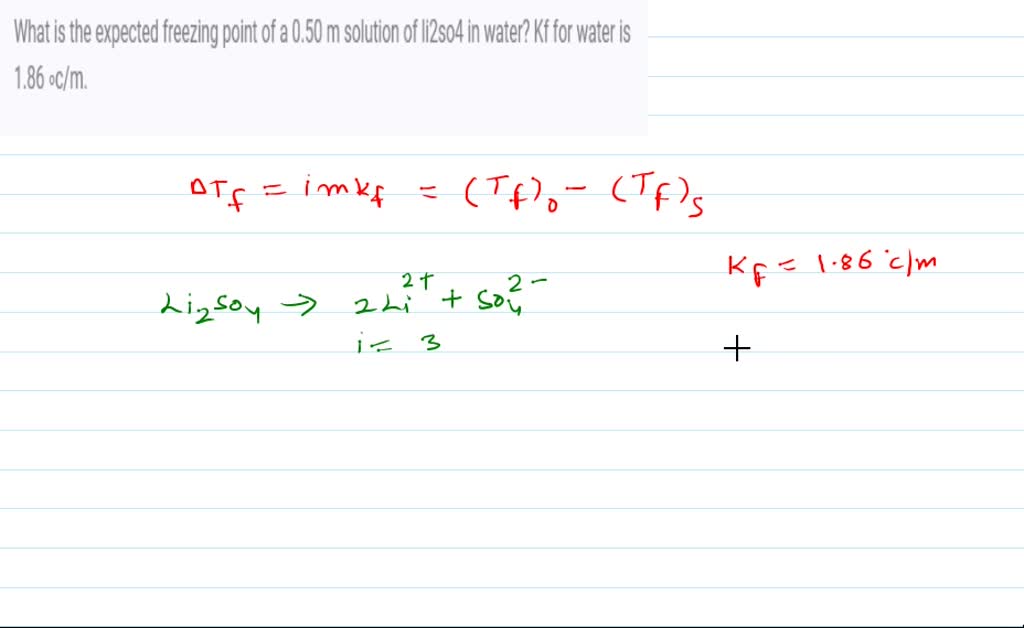 What is the expected freezing point of a 0.50 m solution of li2so4 in water? Kf for water is
1.86 ∘c/m.
ΔTf = i m kf = (Tf)₀ - (Tf)s
Kf = 1.86 °c/m
Li₂SO₄ → 2Li²⁺ + SO₄²⁻
i = 3